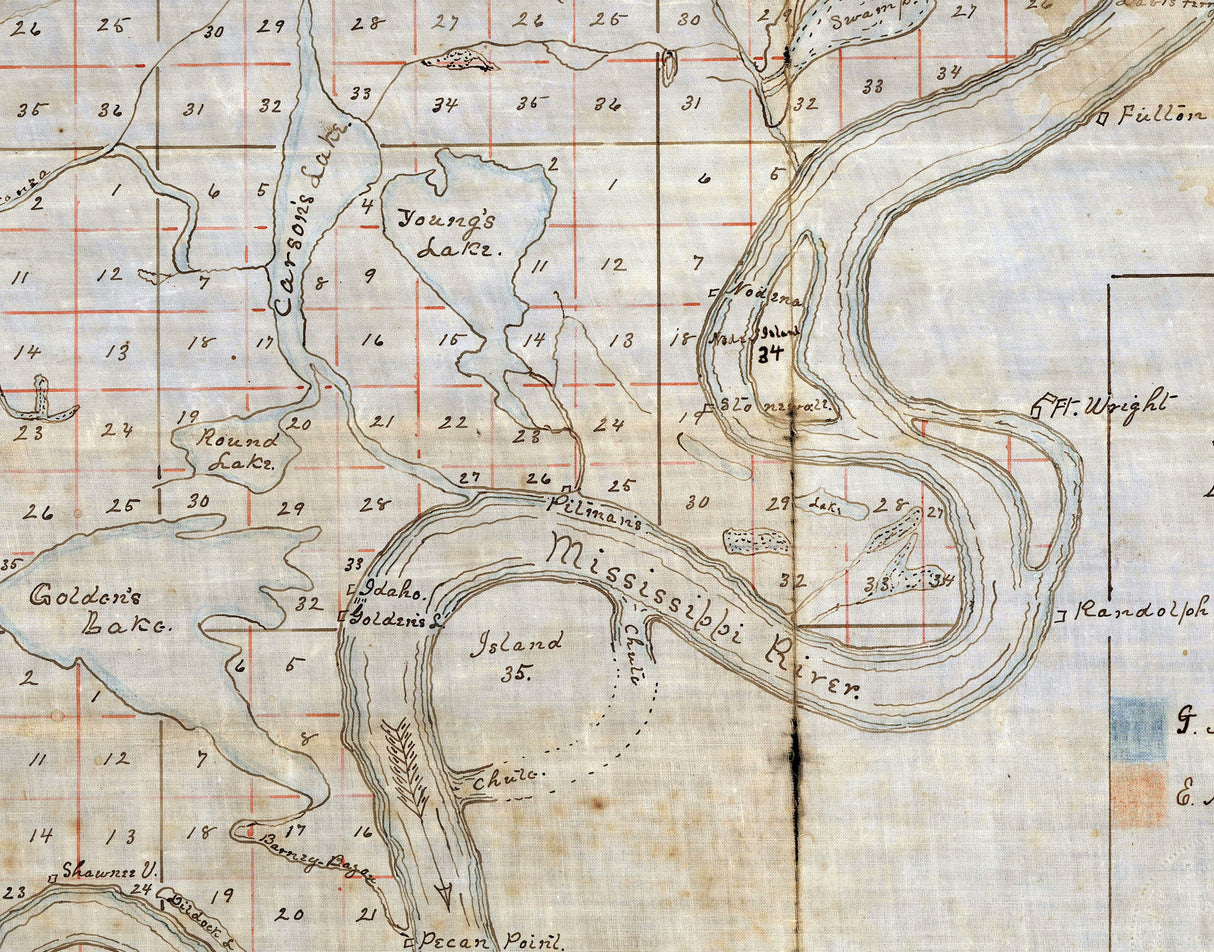 26 25 30 29 28 27 26 25 30 29 27 26
Swamp
33 34
35 36 31 32 33 34 35 36 31 32
Fulton
Carson's Lake.
2 1 6 5 4 2 1 6 5
Young's
Lake.
11 12 7 8 9 11 12 7
Nodena
Island
34
14 13 18 17 16 15 14 13 18
Stonewall.
Ft. Wright
23 24 19 20 21 22 23 24 19
Round
Lake.
26 25 30 29 28 27 26 25 30 29 28 27
Lake
Pitman's
Mississippi River.
35 33 32 32 33 34
Golden's
Lake.
Idaho.
Golden's L.
Randolph
Island
35.
Chute
2 1 6 5
11 12 7 8
Chute.
G.
E.
14 13 18 17 16
Barney Bazar
Shawnee V.
23 24 19 20 21
Pecan Point.